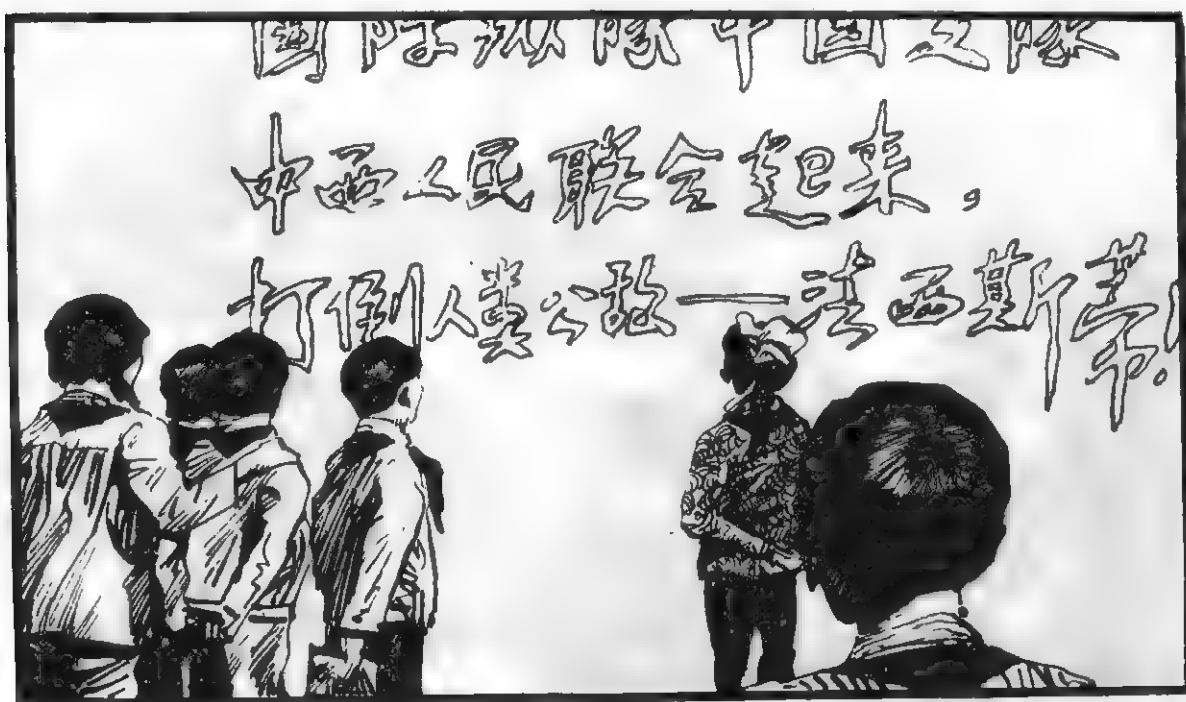 國际縱隊中國支隊
中西人民联合起来，
打倒人类公敌——法西斯蒂！